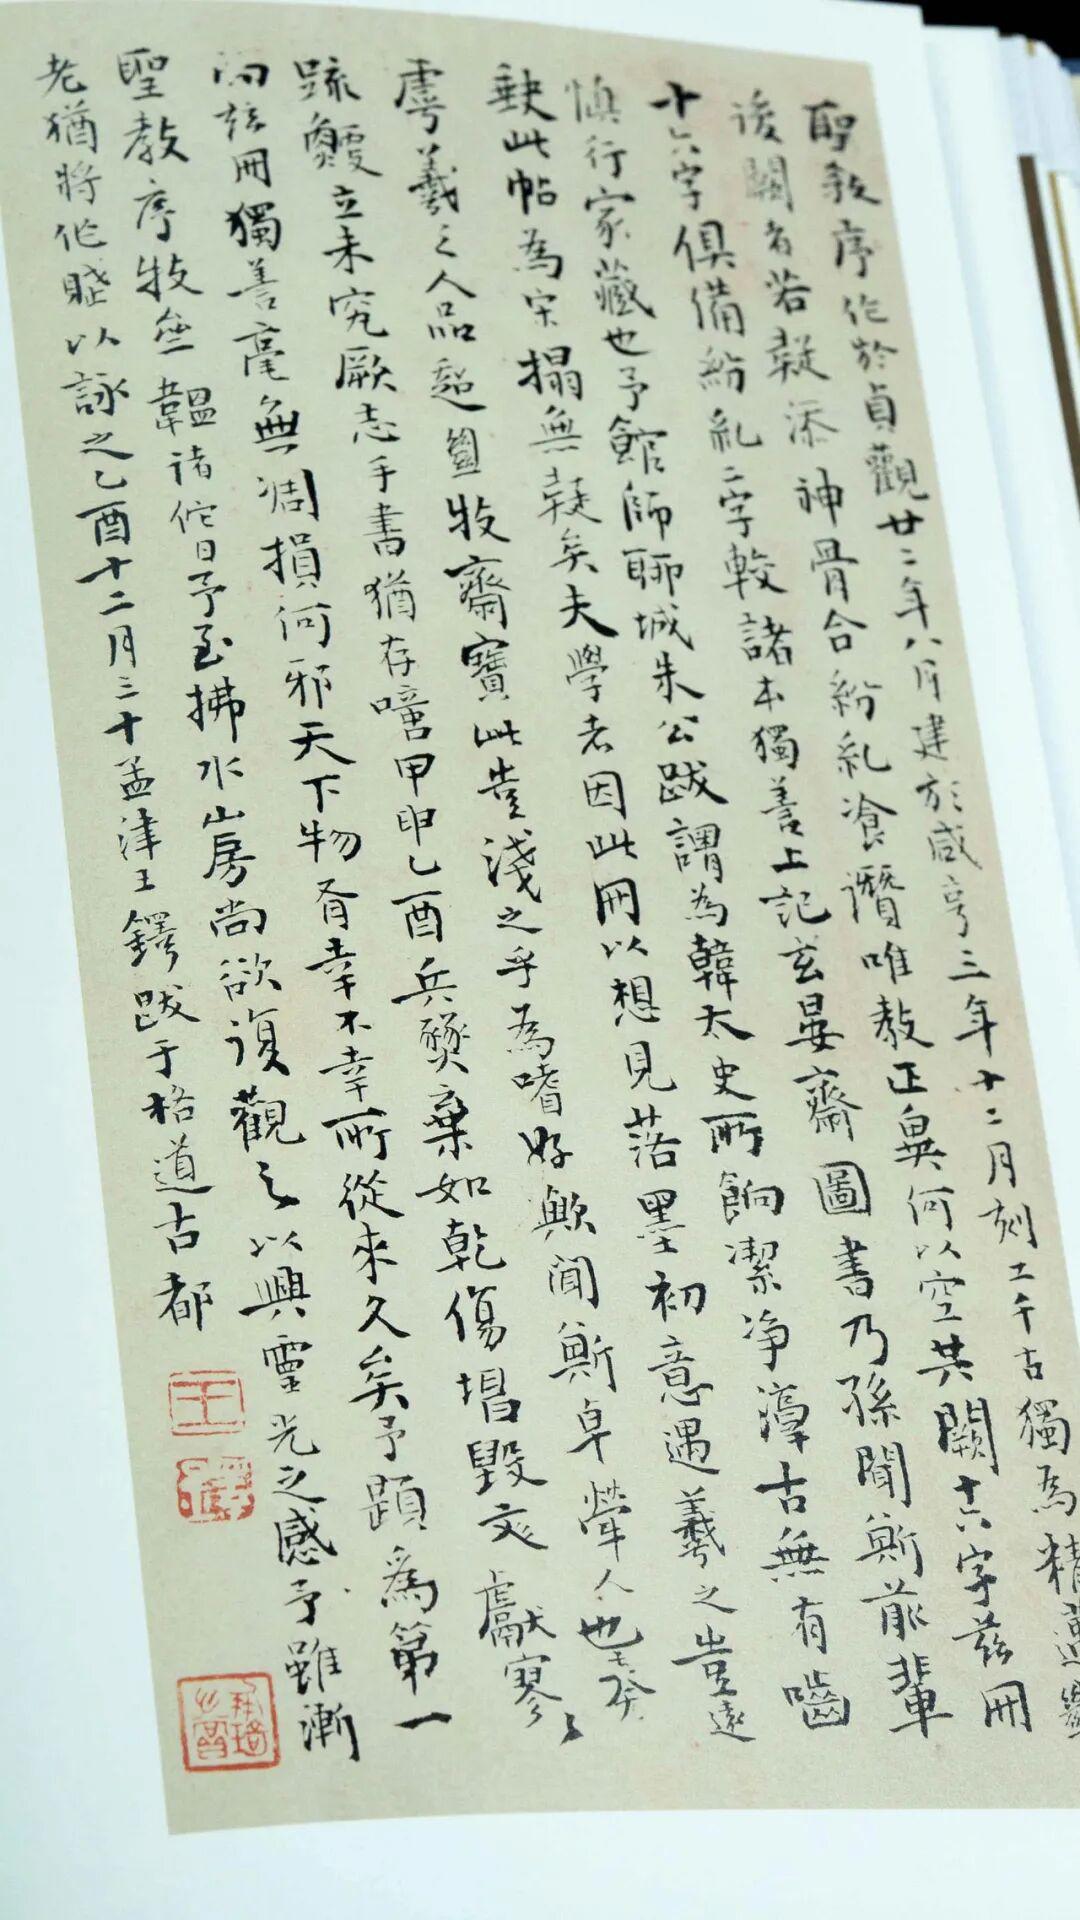 聖教序作於貞觀廿二年八月建於咸亨三年十二月刻工千古獨為精
後闕者若疑添神骨合紛糺飡潛唯教正奥何以空其闕十六字茲冊
十六字俱備紛糺二字較諸本獨善上記玄晏齋圖書乃孫聞斯前輩
慎行家藏也予館師聊城朱公跋謂為韓太史所餉潔净渾古無有嚙
缺此帖為宋搨無疑矣夫學者因此冊以想見落墨初意遇羲之豈遠
虖羲之人品超牧齋寶此豈淺之乎為嗜好歟聞斯卓犖人也
疏立未究厥志手書猶存噫甲申乙酉兵燹棄如乾傷毀文獻寥々
而茲冊獨善毫無凋損何邪天下物有幸不幸所從來久矣予題為第一
聖教序牧韞諸佗日予至拂水山房尚欲復觀之以興靈光之感予雖漸
老猶將作賦以詠之乙酉十二月三十孟津王鐸跋于格道古都
王
鐸